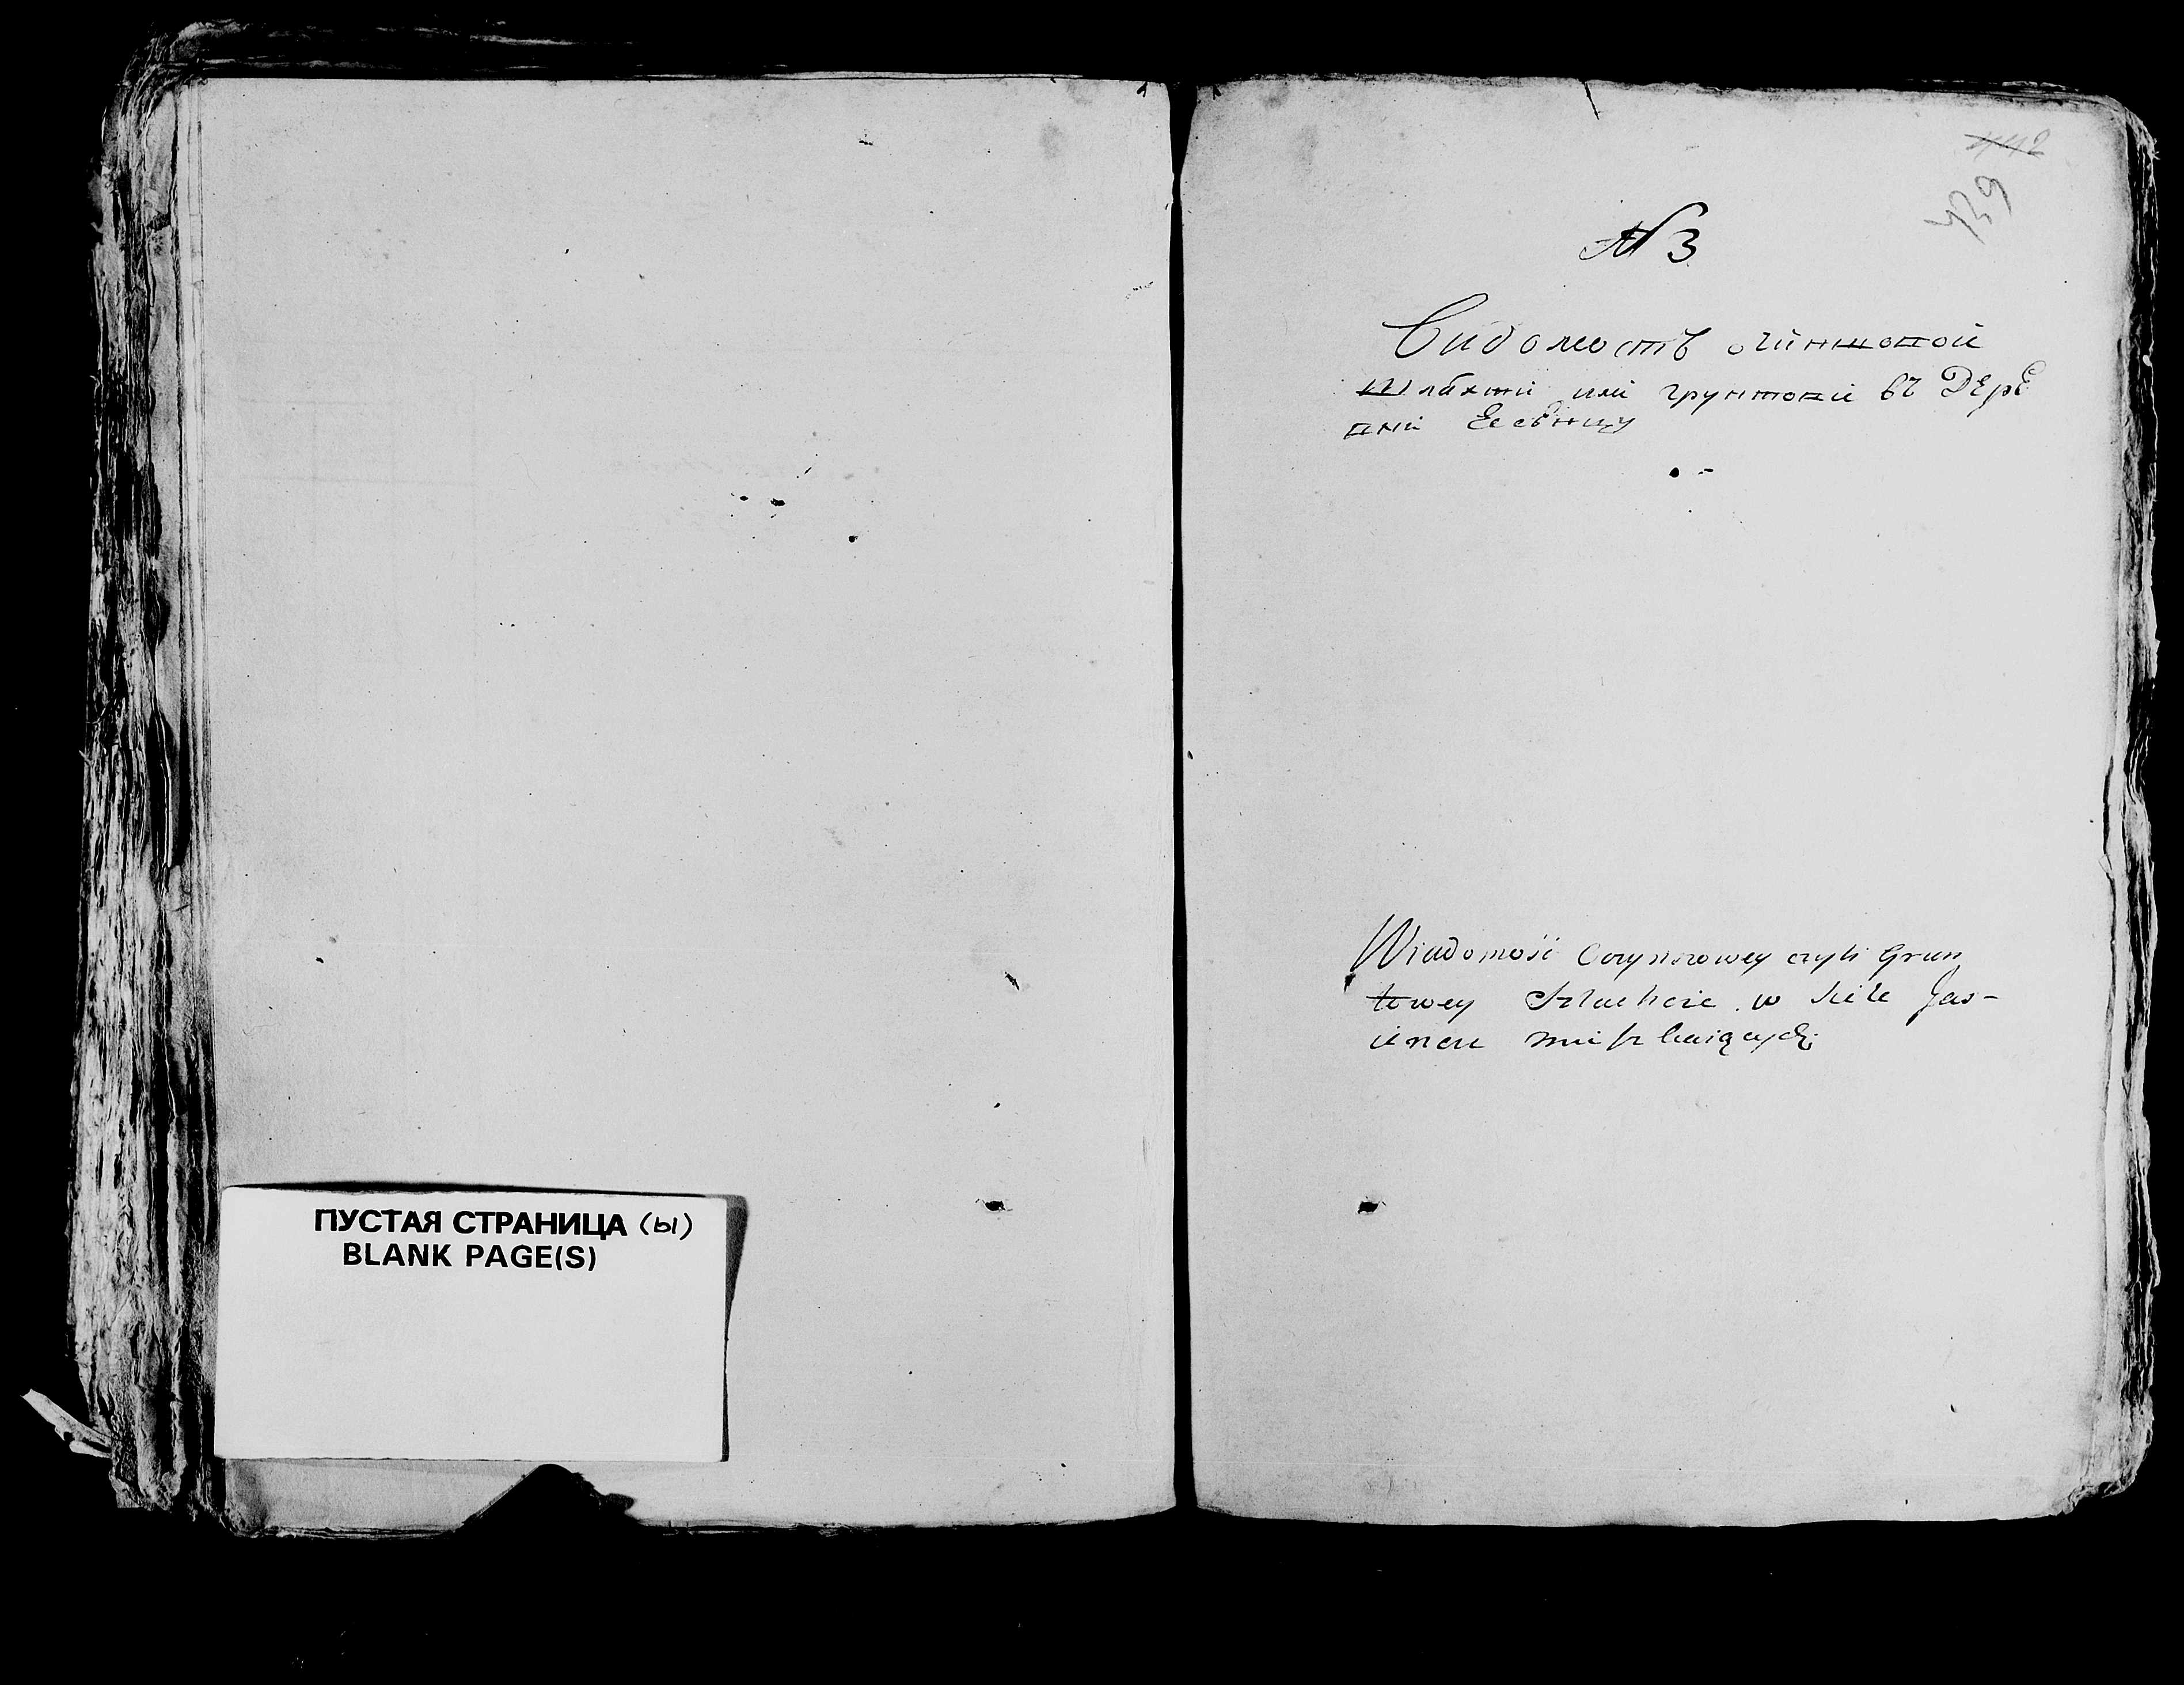 ПУСТАЯ СТРАНИЦА (ы)
BLANK PAGE(S)
442
439
№ 3
Видомость очиншовой
шляхти или грунтовей въ Дере
вни
Wiadomość Czynszowey czyli Grun
towey Szlachcie w siele Jas-
ieńcu mieszkaiących